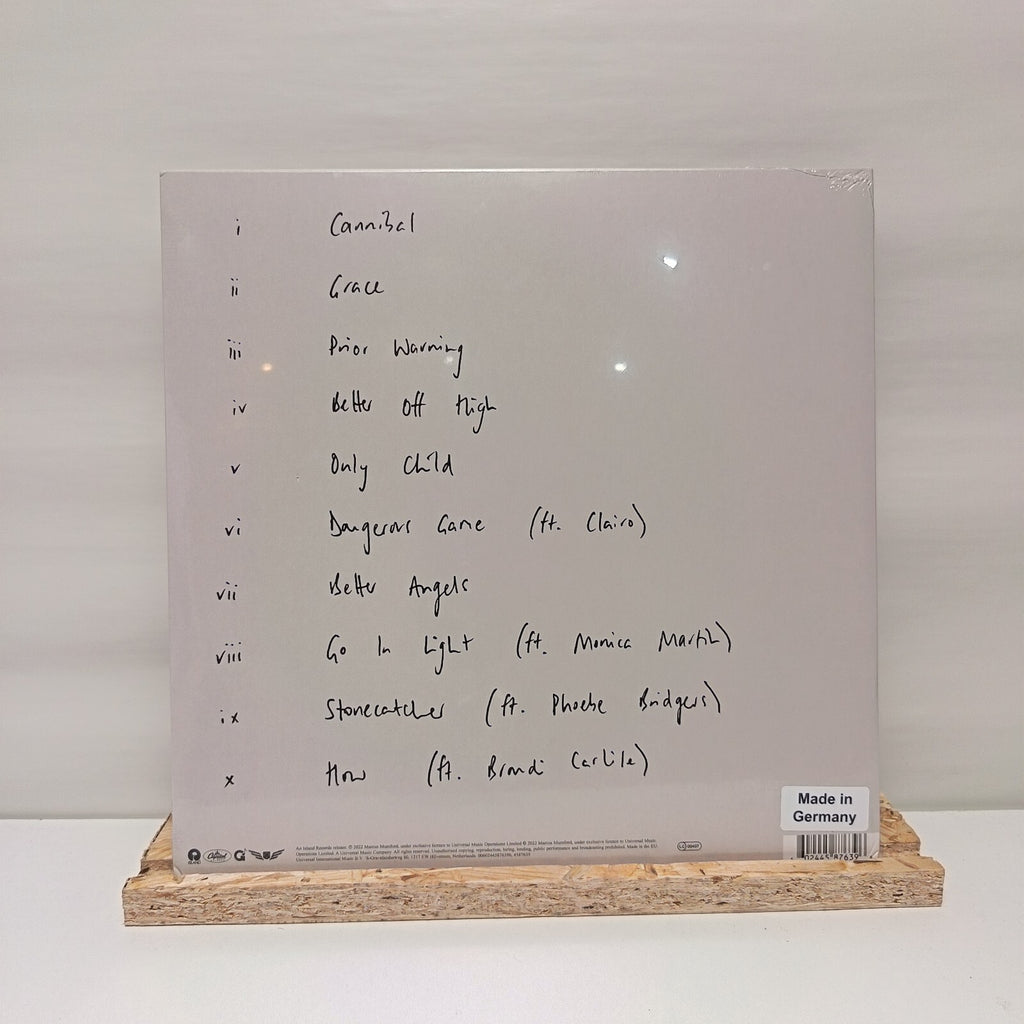 i Cannibal
ii Grace
iii Prior Warning
iv Better Off High
v Only Child
vi Dangerous Game (ft. Clairo)
vii Better Angels
viii Go In Light (ft. Monica Martin)
ix Stonecatcher (ft. Phoebe Bridgers)
x How (ft. Brandi Carlile)
Made in
Germany
ISLAND Capitol
An Island Records release. ℗ 2022 Marcus Mumford, under exclusive licence to Universal Music Operations Limited © 2022 Marcus Mumford, under exclusive licence to Universal Music
Operations Limited. A Universal Music Company. All rights reserved. Unauthorised copying, reproduction, hiring, lending, public performance and broadcasting prohibited. Made in the EU.
Universal International Music B.V. Netherlands 4587639
LC 00407
02445 87639